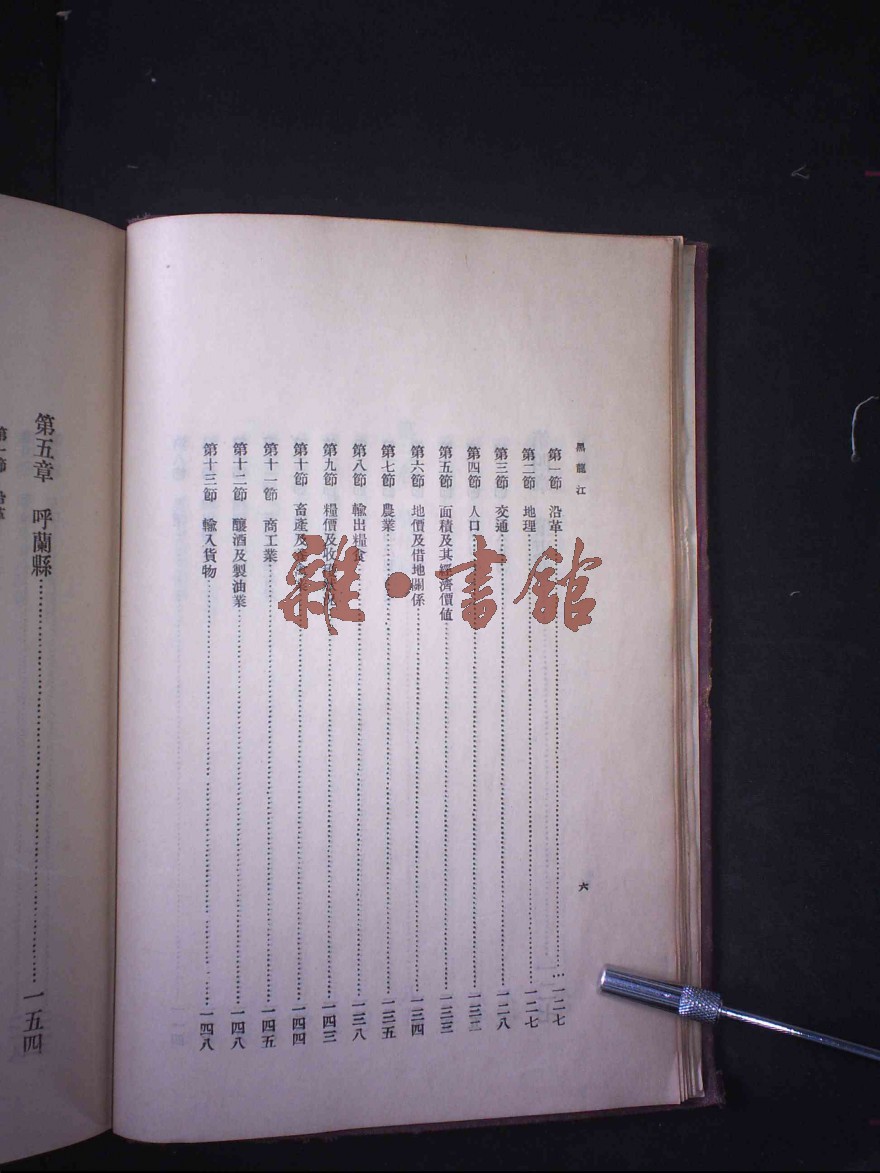 黑龍江
六
第一節 沿革……一二七
第二節 地理……一二七
第三節 交通……一二八
第四節 人口……一三二
第五節 面積及其經濟價值……一三三
第六節 地價及借地關係……一三四
第七節 農業……一三五
第八節 輸出糧食……一三八
第九節 糧價及收……一四三
第十節 畜產及……一四四
第十一節 商工業……一四五
第十二節 釀酒及製油業……一四八
第十三節 輸入貨物……一四八
第五章 呼蘭縣……一五四
第一節 沿革
雜·書館